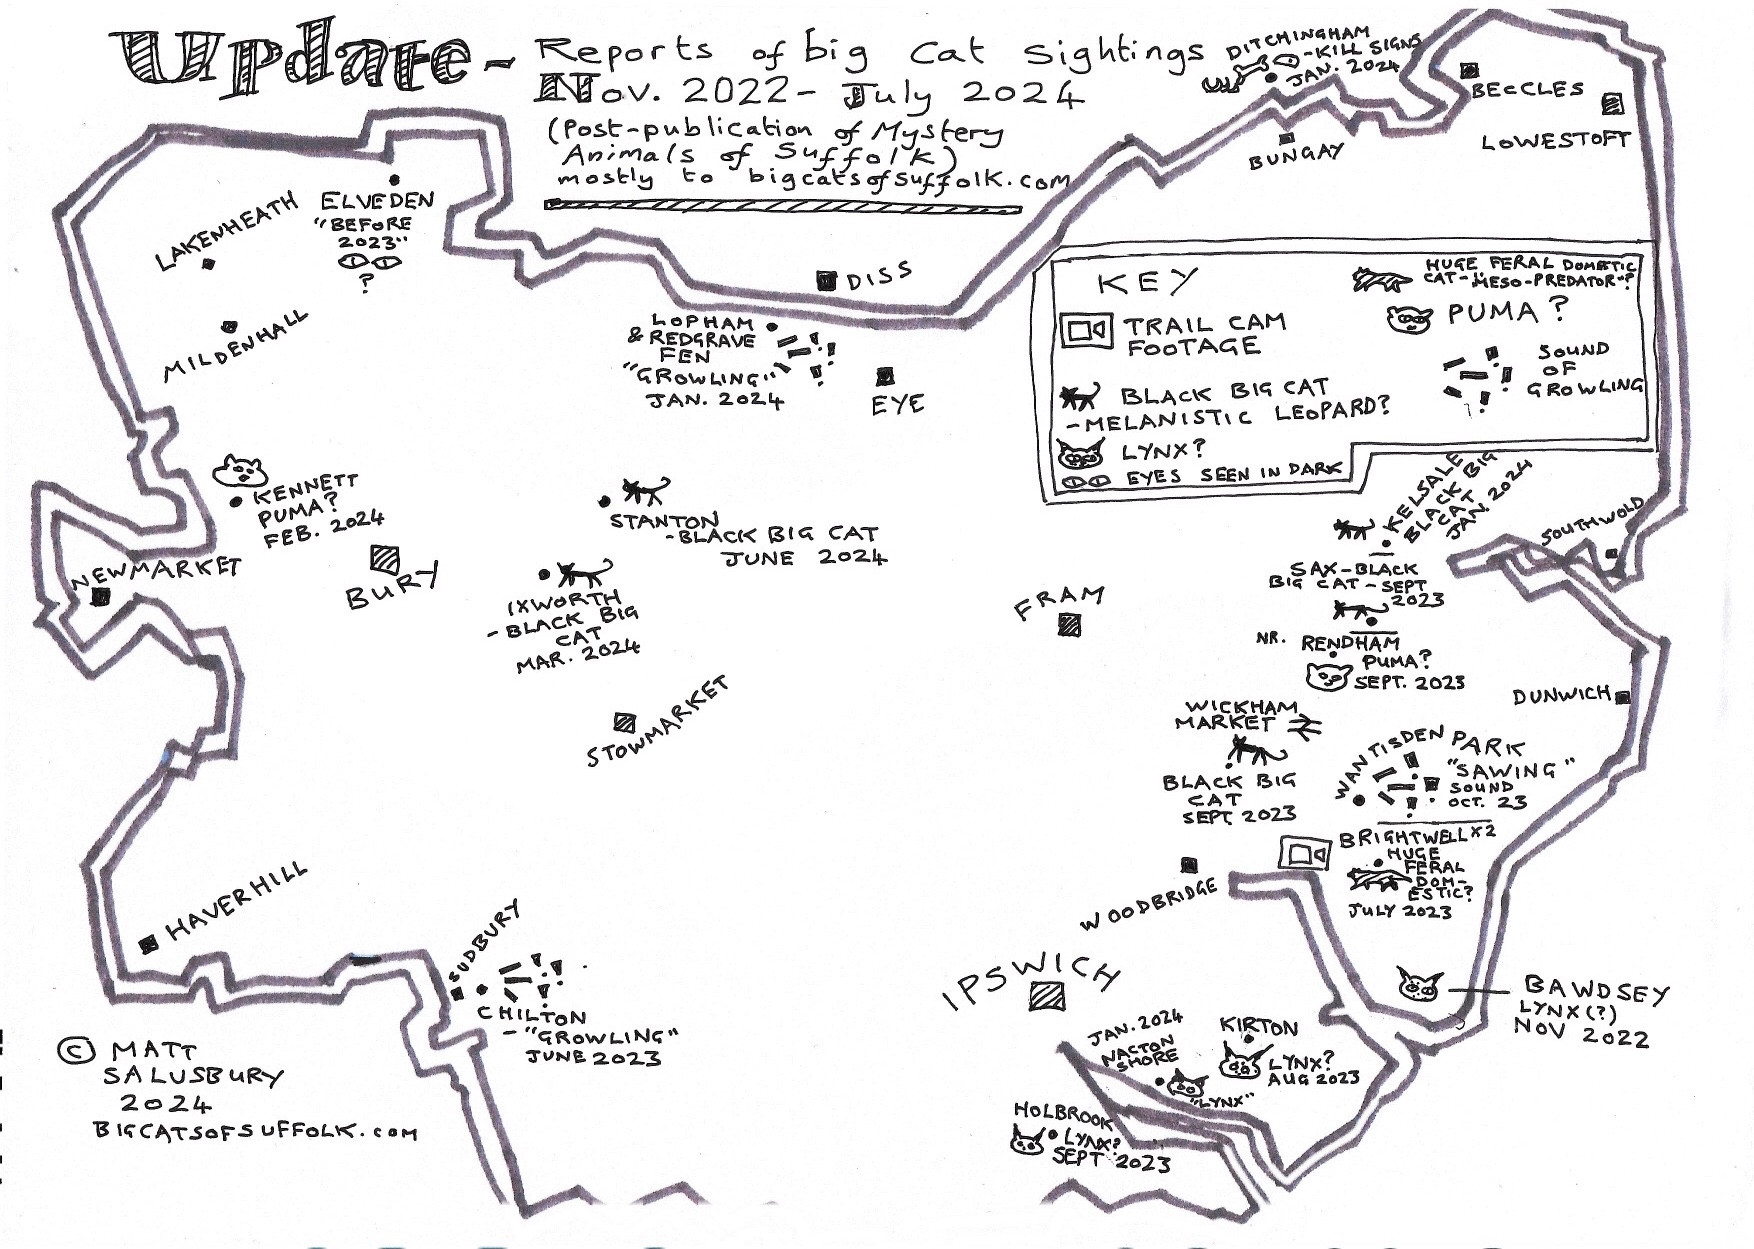 Update - Reports of big cat sightings
Nov. 2022 - July 2024
(Post-publication of Mystery
Animals of Suffolk)
mostly to bigcatsofsuffolk.com
DITCHINGHAM
-KILL SIGNS
JAN. 2024
BECCLES
LOWESTOFT
BUNGAY
LAKENHEATH
ELVEDEN
"BEFORE
2023"
?
MILDENHALL
DISS
LOPHAM
& REDGRAVE
FEN
"GROWLING"
JAN. 2024
EYE
KEY
TRAIL CAM
FOOTAGE
BLACK BIG CAT
-MELANISTIC LEOPARD?
LYNX?
EYES SEEN IN DARK
HUGE FERAL DOMESTIC
CAT-"MESO-PREDATOR"?
PUMA?
SOUND
OF
GROWLING
KENNETT
PUMA?
FEB. 2024
NEWMARKET
BURY
STANTON
-BLACK BIG CAT
JUNE 2024
IXWORTH
-BLACK BIG
CAT
MAR. 2024
STOWMARKET
FRAM
KELSALE
BLACK BIG
CAT
JAN. 2024
SOUTHWOLD
SAX-BLACK
BIG CAT-SEPT
2023
NR. RENDHAM
PUMA?
SEPT. 2023
DUNWICH
WICKHAM
MARKET
BLACK BIG
CAT
SEPT. 2023
WANTISDEN PARK
"SAWING"
SOUND
OCT. 23
BRIGHTWELL X2
HUGE
FERAL
DOM-
ESTIC?
JULY 2023
WOODBRIDGE
HAVERHILL
SUDBURY
CHILTON
-"GROWLING"
JUNE 2023
IPSWICH
BAWDSEY
LYNX(?)
NOV 2022
JAN. 2024
NACTON
SHORE
"LYNX"
KIRTON
LYNX?
AUG 2023
HOLBROOK
LYNX?
SEPT 2023
© MATT
SALUSBURY
2024
BIGCATSOFSUFFOLK.COM